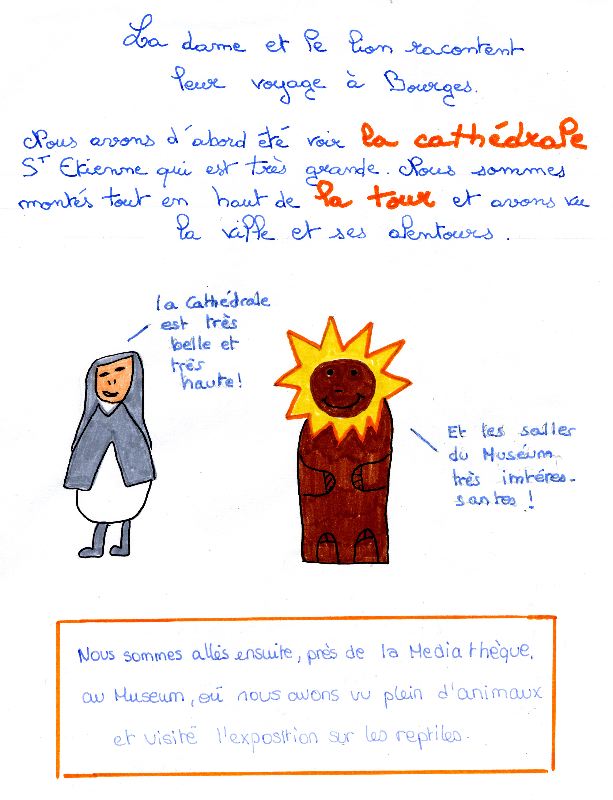 La dame et le lion racontent
leur voyage à Bourges.
Nous avons d'abord été voir la cathédrale
ST Etienne qui est très grande. Nous sommes
montés tout en haut de la tour et avons vu
la ville et ses alentours.
la Cathédrale
est très
belle et
très
haute!
Et les salles
du Muséum
très intéres-
santes!
Nous sommes allés ensuite, près de la Mediathèque,
au Museum, où nous avons vu plein d'animaux
et visité l'exposition sur les reptiles.